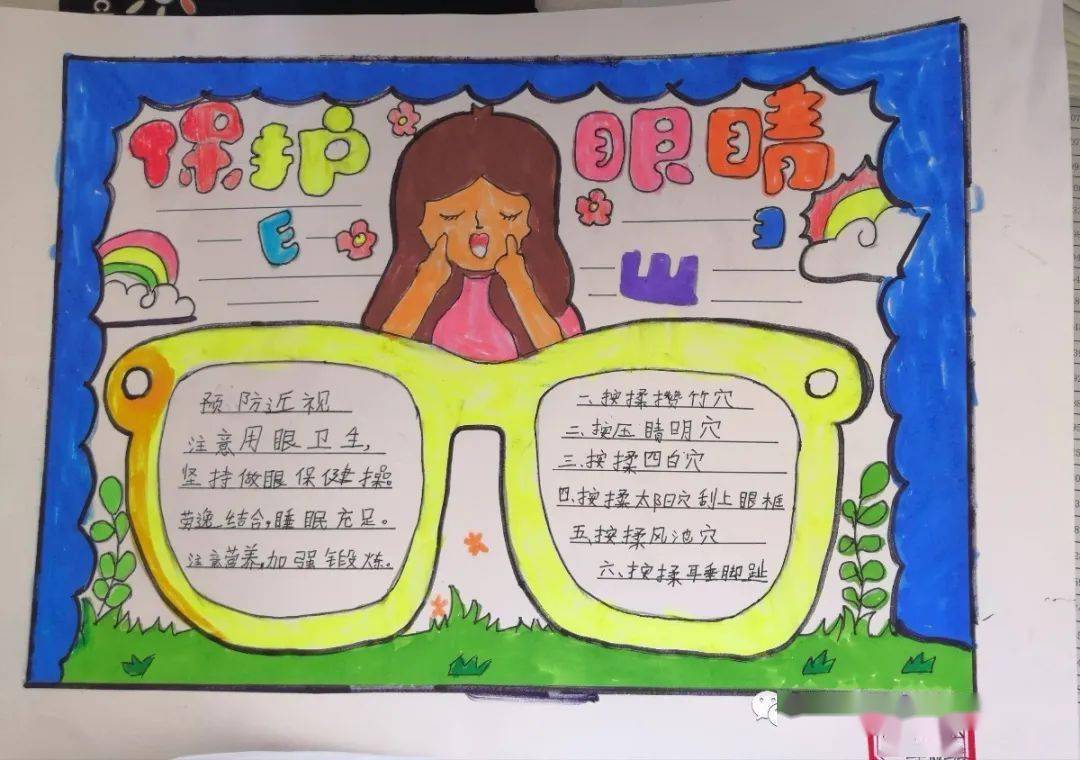 保护 眼睛
E E
E
预防近视
注意用眼卫生,
坚持做眼保健操。
劳逸结合,睡眠充足。
注意营养,加强锻炼。
一、按揉攒竹穴
二、按压睛明穴
三、按揉四白穴
四、按揉太阳穴刮上眼框
五、按揉风池穴
六、按揉耳垂脚趾